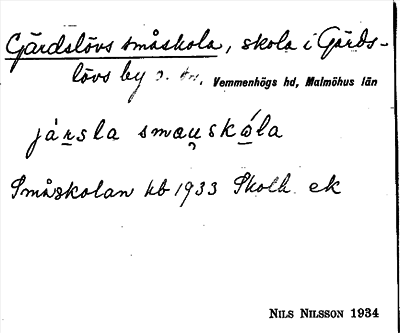 Gärdslövs småskola, skola i Gärds-
lövs by o. sn, Vemmenhögs hd, Malmöhus län
jársla smauskóla
Småskolan kb 1933 Skolh. ek
NILS NILSSON 1934